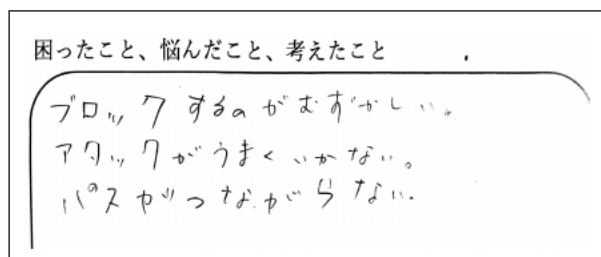 困ったこと、悩んだこと、考えたこと
ブロックするのがむずかしい。
アタックがうまくいかない。
パスがつながらない.